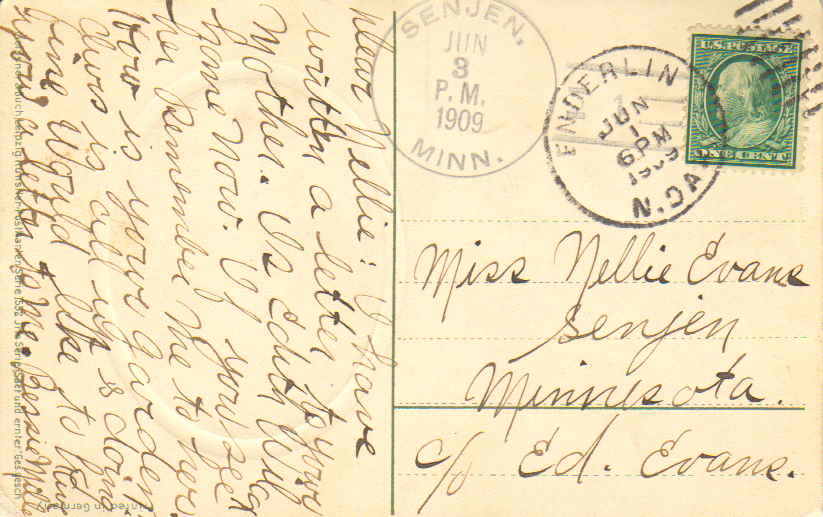 SENJEN,
JUN
3
P.M.
1909
MINN.
ENDERLIN
JUN
1
6 PM
1909
N. DAK.
U.S. POSTAGE
ONE CENT
Miss Nellie Evans
Senjen
Minnesota.
c/o Ed. Evans.
Dear Nellie: I have
written a letter to your
Mother. Is Edith
home now. If you see
her remember me to her
How is your garden?
Ours is all up & doing
fine. Would like to have
you a letter to me. Bessie
Printed in Germany